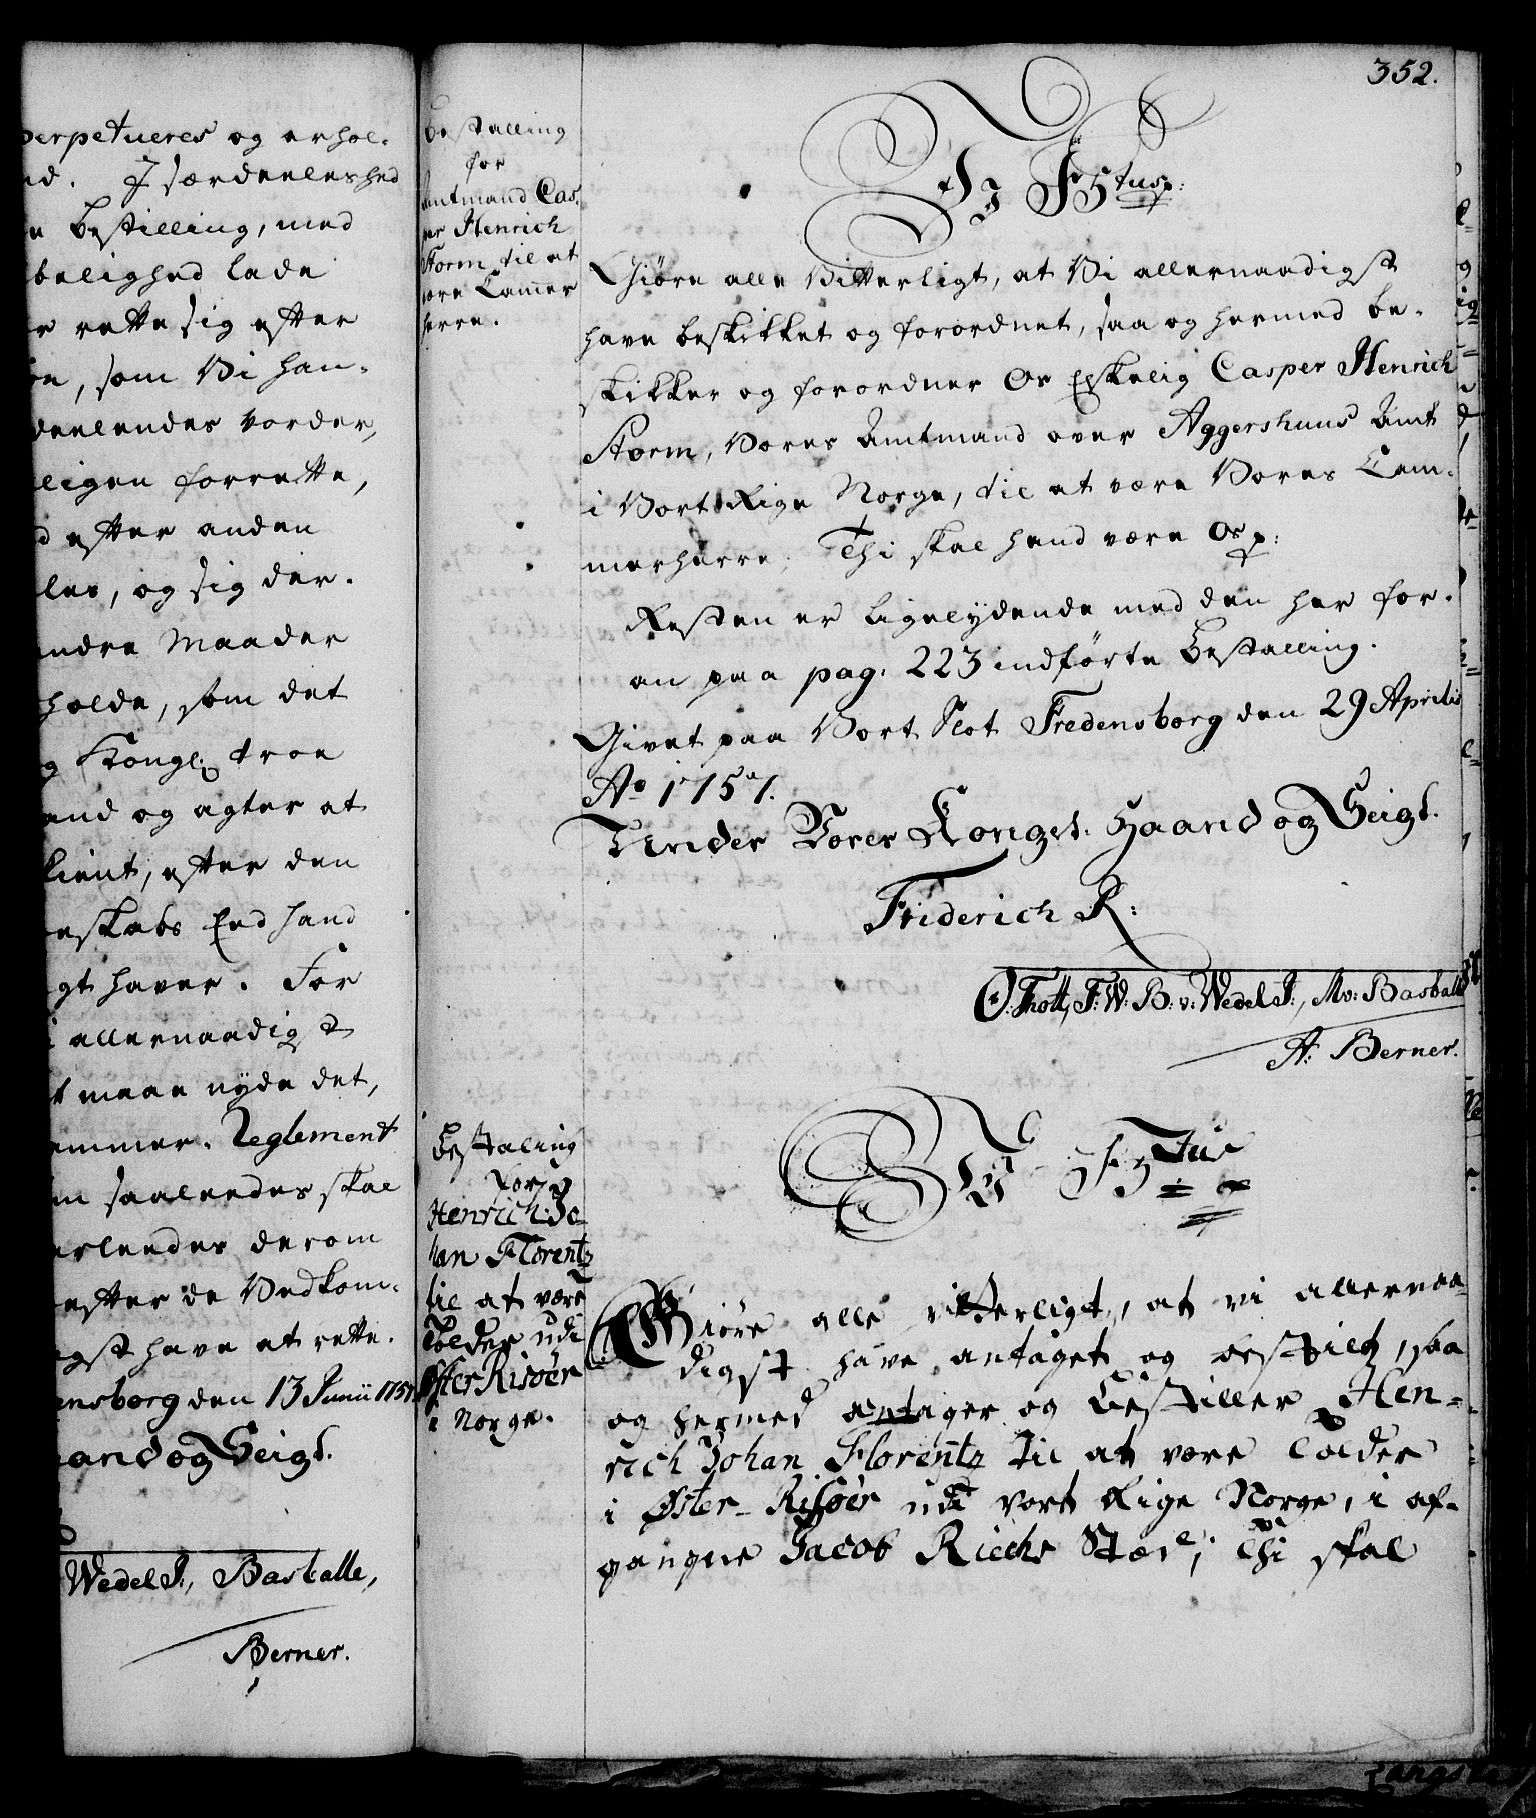 perpetueres og erhol-
d. J særdeeleshed
e Bestilling, med
belighed lade
r rette sig efter
en, som Vi han-
deelendes vorder,
ligen forrette,
d efter anden
les, og sig der-
andre Maader
holde, som det
g Kongl. troe
and og agter at
tient, efter den
eskabs Eed hand
gt haver. For
i allernaadigst
t maae nyde det,
ammer-Reglement
m saaledes skal
erleedes derom
efter de Vedkom-
gst have at rette.
ensborg den 13 Junii 1757
aand og Seigl.
Wedel J:, Basballe,
Berner.
Bestalling
for
Amtmand Cas-
per Henrich
Storm til at
være Cammer
herre.
352.
Vi F 5tus p:
Giöre alle Vitterligt, at Vi allernaadigst
have beskikket og forordnet, saa og hermed be-
skikker og forordner Os Elskelig Casper Henrich
Storm, Vores Amtmand over Aggershuus Amt
i Vort Rige Norge, til at være Vores Cam-
merherre. Thi skal hand være Os p:
Resten er ligelydende med den her for-
an paa pag. 223 indförte Bestalling.
Givet paa Vort Slot Fredensborg den 29 Aprilis
Ao 1757.
Under Vores Kongel. Haand og Seigl.
Friderich R:
O. Thott, F: W: B: v: Wedel J:, Mv: Basballe
A: Berner.
Bestaling
for
Henrich Jo-
han Florentz
til at være
Tolder udi
Øster Risöer
i Norge.
Vi F 5tus
Giöre alle vitterligt, at vi allernaa-
digst have antaget og bestilt, saa
og hermed antager og Bestiller Hen-
rich Johan Florentz til at være Tolder
i Øster-Risöer udi vort Rige Norge, i af-
gangne Jacob Riechs Stæd; Thi skal